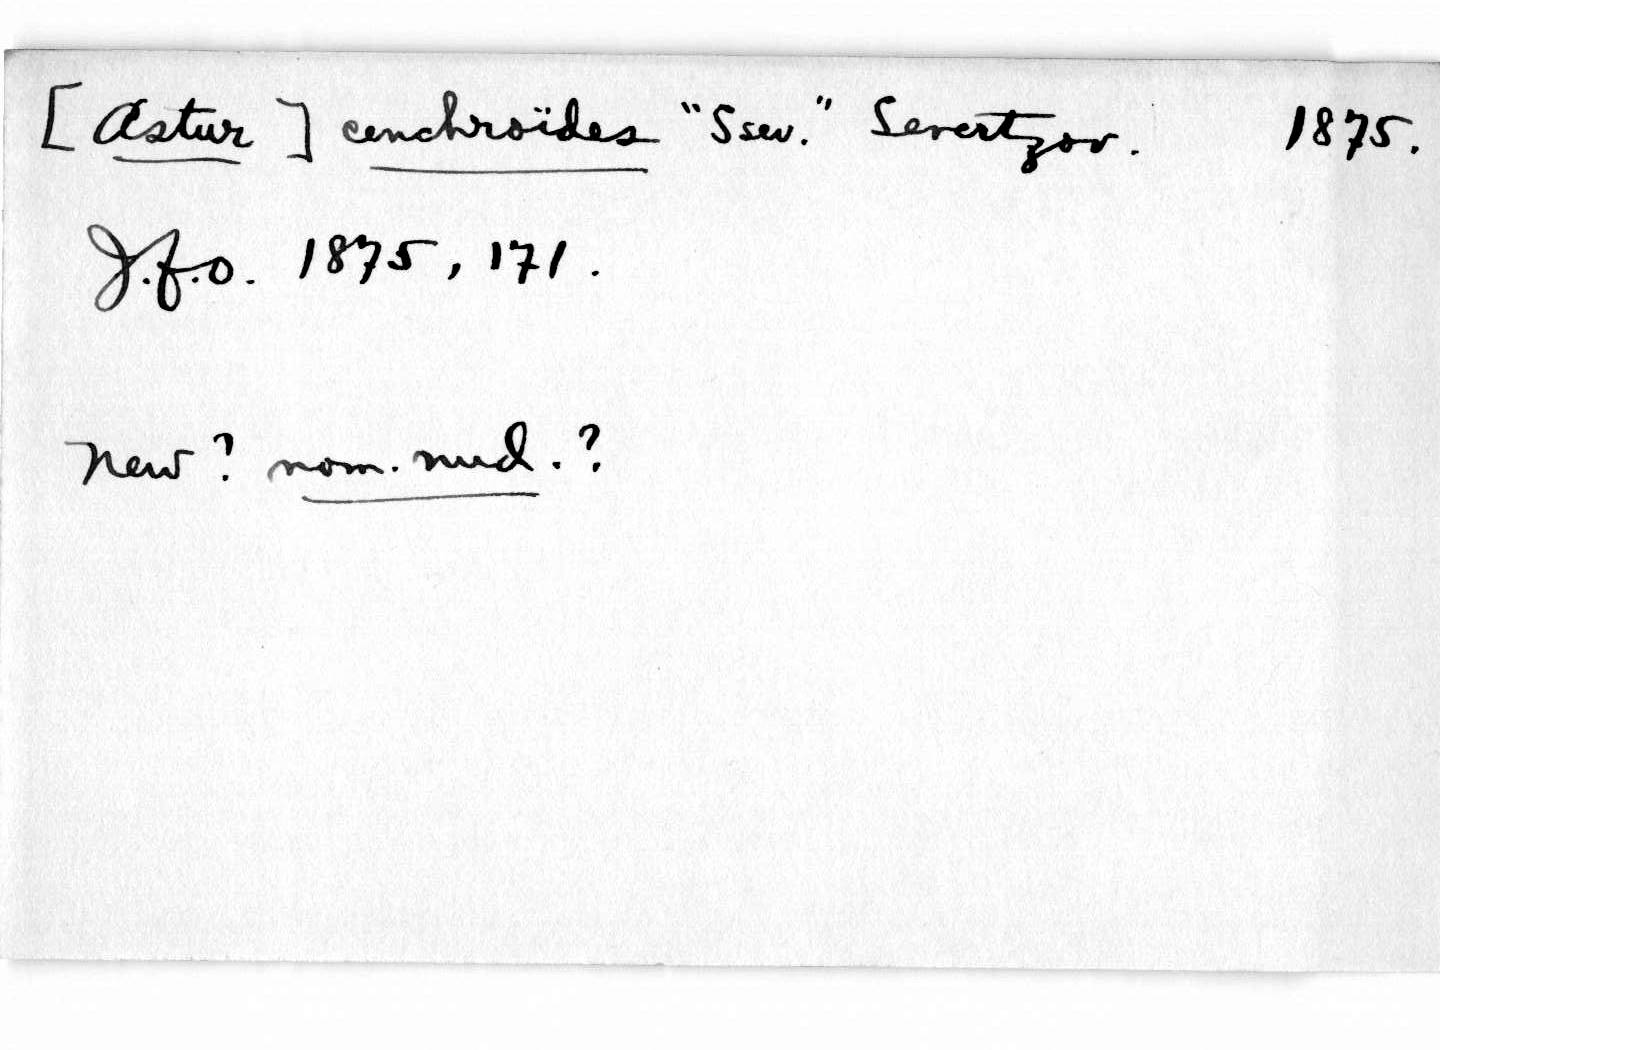 [Astur] cenchroïdes "Ssew." Severtzov. 1875.
J.f.O. 1875, 171.
New? nom. nud.?